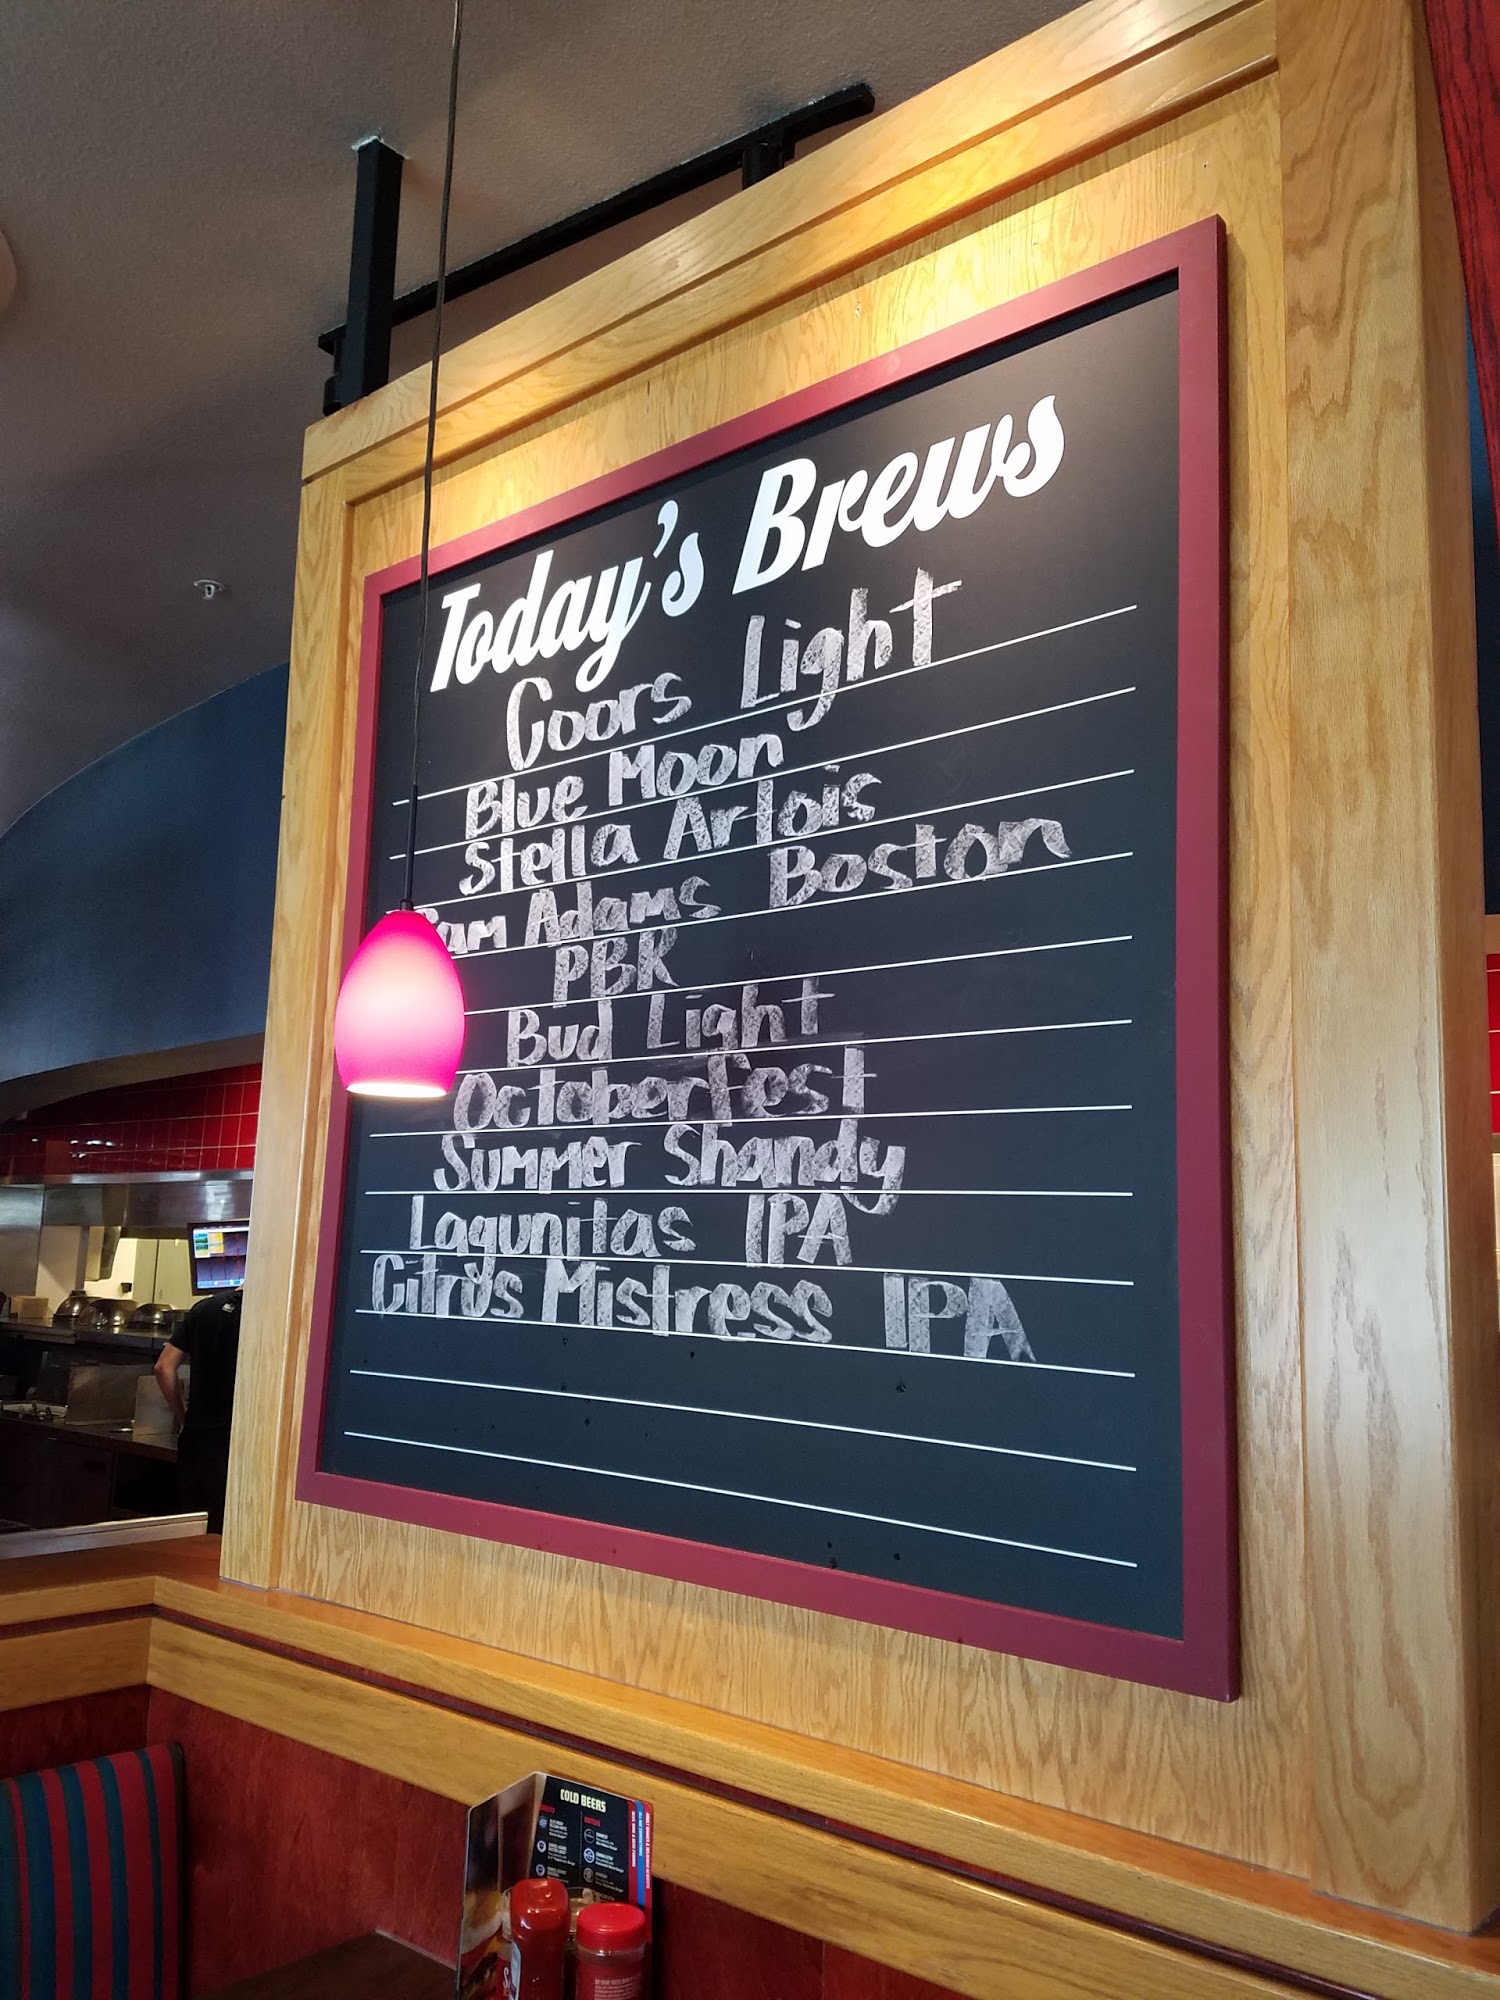 Today's Brews
Coors Light
Blue Moon
Stella Artois
Sam Adams Boston
PBR
Bud Light
Octoberfest
Summer Shandy
Lagunitas IPA
Citrus Mistress IPA
COLD BEERS